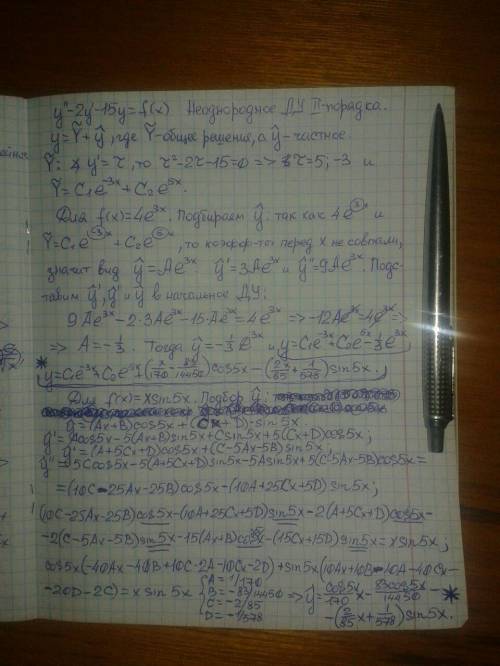 y"-2y'-15y=f(x) Неоднородное ДУ II-порядка.
y=Ỹ+ŷ, где Ỹ-общее решение, а ŷ-частное
Ỹ: ∢ y'=τ, то τ²-2τ-15=0 => τ=5;-3 и
Ỹ=C₁e^{-3x}+C₂e^{5x}.
Для f(x)=4e^{3x}. Подбираем ŷ: так как 4e^{3x} и
Ỹ=C₁e^{-3x}+C₂e^{5x}, то коэфф-ты перед x не совпали,
значит вид ŷ=Ae^{3x} ŷ'=3Ae^{3x} и ŷ"=9Ae^{3x}. Подс-
тавим ŷ',ŷ" и ŷ в начальное ДУ:
9Ae^{3x}-2·3Ae^{3x}-15·Ae^{3x}=4e^{3x} => -12Ae^{3x}=4e^{3x} =>
=> A=-1/3. Тогда ŷ=-1/3e^{3x} и y=C₁e^{-3x}+C₂e^{5x}-1/3e^{3x};
* y=C₁e^{-3x}+C₂e^{5x}+(x/170-83/14450)cos5x-(2x/85+1/578)sin5x.
Для f(x)=xsin5x. Подбор ŷ:
ŷ=(Ax+B)cos5x+(Cx+D)·sin5x
ŷ'=Acos5x-5(Ax+B)sin5x+Csin5x+5(Cx+D)cos5x;
ŷ'=(A+5Cx+D)cos5x+(C-5Ax-5B)sin5x
ŷ"=5Ccos5x-5(A+5Cx+D)sin5x-5Asin5x+5(C-5Ax-5B)cos5x=
=(10C-25Ax-25B)cos5x-(10A+25Cx+5D)sin5x;
(10C-25Ax-25B)cos5x-(10A+25Cx+5D)sin5x-2(A+5Cx+D)cos5x-
-2(C-5Ax-5B)sin5x-15(Ax+B)cos5x-(15Cx+15D)sin5x=xsin5x;
cos5x(-40Ax-40B+10C-2A-10Cx-2D)+sin5x(10Ax+10B-10A-40Cx-
-20D-2C)=xsin5x {A=1/170 B=-83/14450 C=-2/85 D=-1/578 => ŷ=cos5x/170-83cos5x/14450- *
-(2/85x+1/578)sin5x.